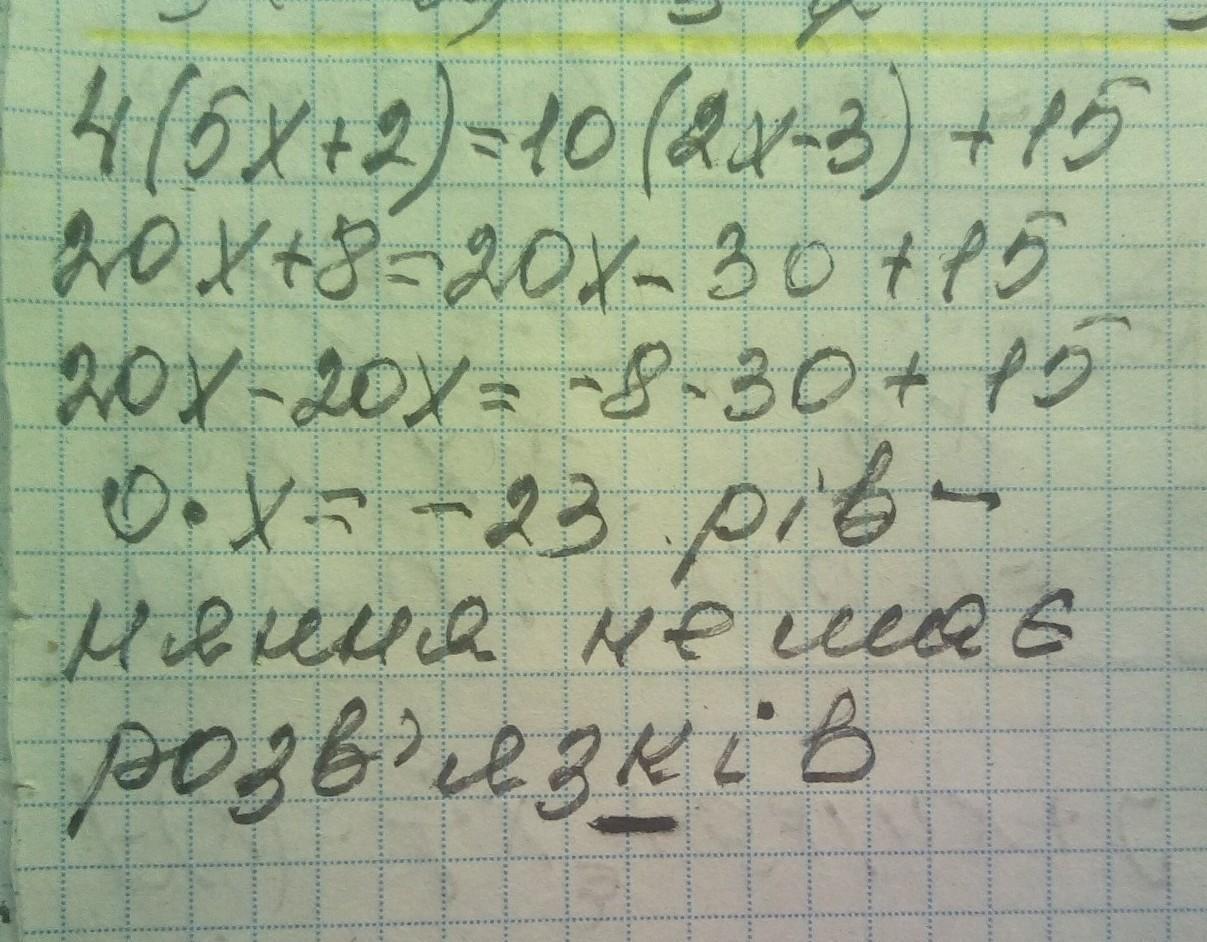 4(5x+2)=10(2x-3)+15
20x+8=20x-30+15
20x-20x=-8-30+15
0·x=-23 рів-
няння не має
розв'язків